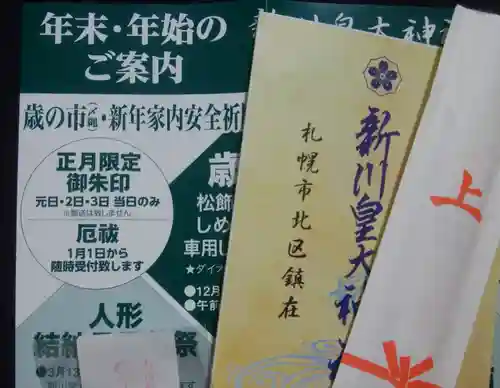 年末・年始の
ご案内
歳の市(〆縄)・新年家内安全祈
正月限定
御朱印
元日・2日・3日 当日のみ
※郵送は致しません
厄祓
1月1日から
随時受付致します
歳
松飾
しめ
車用し
★ダイ
●12月
●午前
人形
結納
祭
●3月13
新川皇大神
札幌市北区鎮在
新川皇大神
上